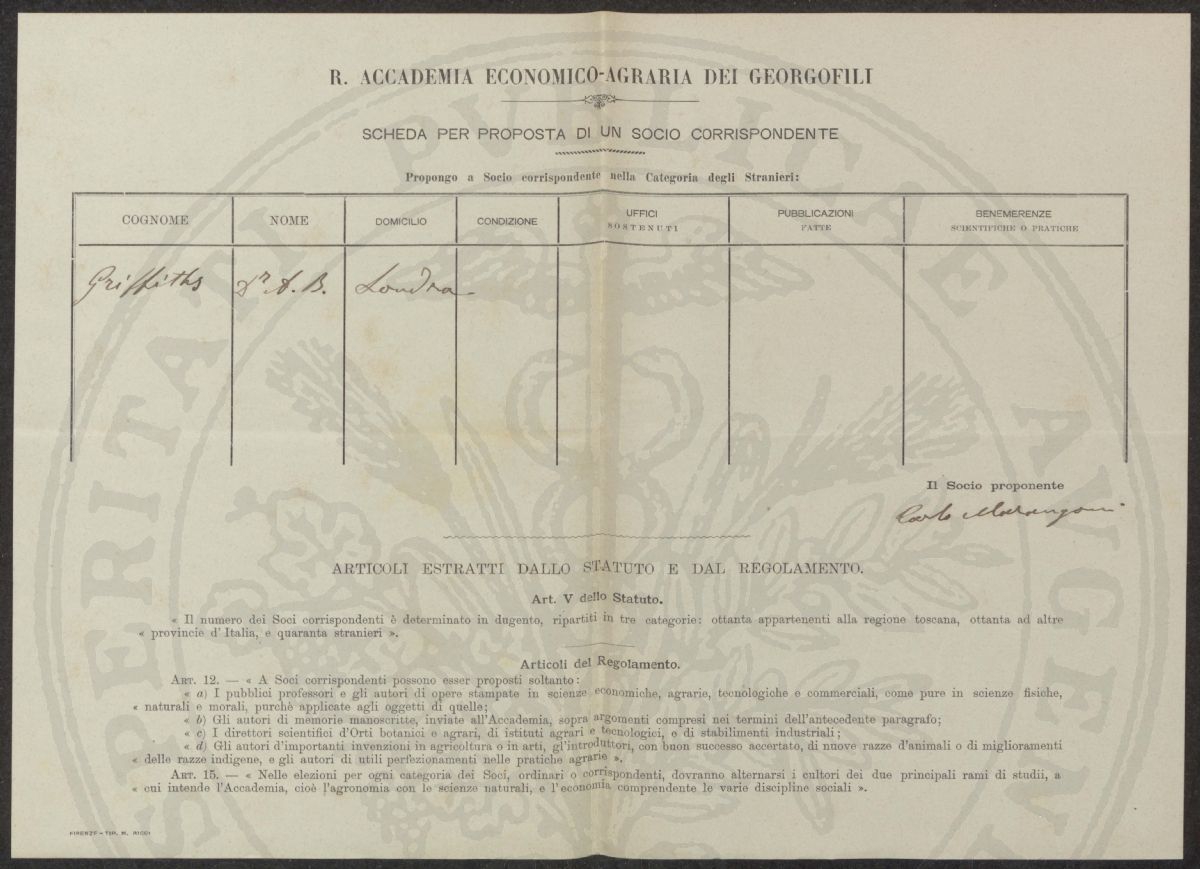 R. ACCADEMIA ECONOMICO-AGRARIA DEI GEORGOFILI
SCHEDA PER PROPOSTA DI UN SOCIO CORRISPONDENTE
Propongo a Socio corrispondente nella Categoria degli Stranieri:
COGNOME NOME DOMICILIO CONDIZIONE UFFICI SOSTENUTI PUBBLICAZIONI FATTE BENEMERENZE SCIENTIFICHE O PRATICHE
Griffiths Dr A. B. Londra
Il Socio proponente
Carlo Marangoni
ARTICOLI ESTRATTI DALLO STATUTO E DAL REGOLAMENTO.
Art. V dello Statuto.
« Il numero dei Soci corrispondenti è determinato in dugento, ripartiti in tre categorie: ottanta appartenenti alla regione toscana, ottanta ad altre
« provincie d'Italia, e quaranta stranieri ».
Articoli del Regolamento.
ART. 12. — « A Soci corrispondenti possono esser proposti soltanto:
« a) I pubblici professori e gli autori di opere stampate in scienze economiche, agrarie, tecnologiche e commerciali, come pure in scienze fisiche,
« naturali e morali, purchè applicate agli oggetti di quelle;
« b) Gli autori di memorie manoscritte, inviate all'Accademia, sopra argomenti compresi nei termini dell'antecedente paragrafo;
« c) I direttori scientifici d'Orti botanici e agrari, di istituti agrari e tecnologici, e di stabilimenti industriali;
« d) Gli autori d'importanti invenzioni in agricoltura o in arti, gl'introduttori, con buon successo accertato, di nuove razze d'animali o di miglioramenti
« delle razze indigene, e gli autori di utili perfezionamenti nelle pratiche agrarie ».
ART. 15. — « Nelle elezioni per ogni categoria dei Soci, ordinari o corrispondenti, dovranno alternarsi i cultori dei due principali rami di studii, a
« cui intende l'Accademia, cioè l'agronomia con le scienze naturali, e l'economia comprendente le varie discipline sociali ».
FIRENZE - TIP. M. RICCI
PROSPERITATI PUBLICAE AVGENDAE